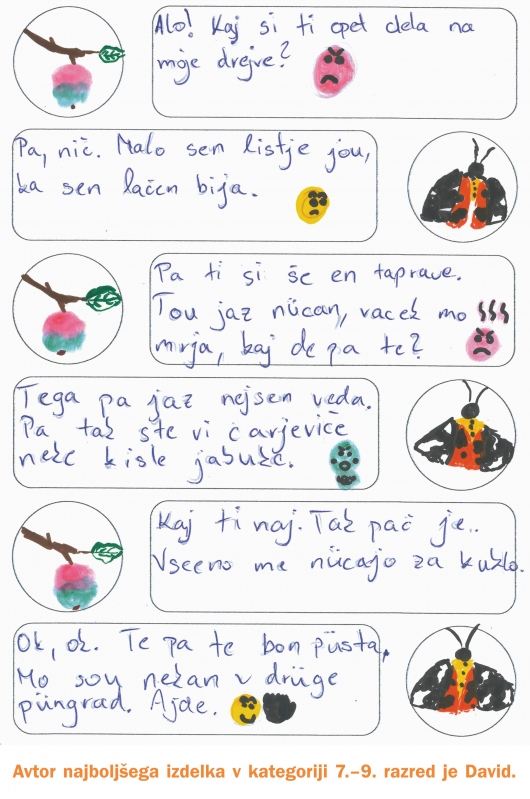 Alo! Kaj si ti opet dela na
moje drejve?
Pa, nič. Malo sen listje jou,
ka sen lačen bija.
Pa ti si še en taprave.
Tou jaz nücan, vacek mo
mrja, kaj de pa te?
Tega pa jaz nejsen veda.
Pa tak ste vi čarjeviče
neke kisle jabuke.
Kaj ti naj. Tak pač je..
Vseeno me nücajo za kuhlo.
Ok, ok. Te pa te bon püsta,
Mo soy nekan v drüge
püngrad. Ajde.
Avtor najboljšega izdelka v kategoriji 7.–9. razred je David.